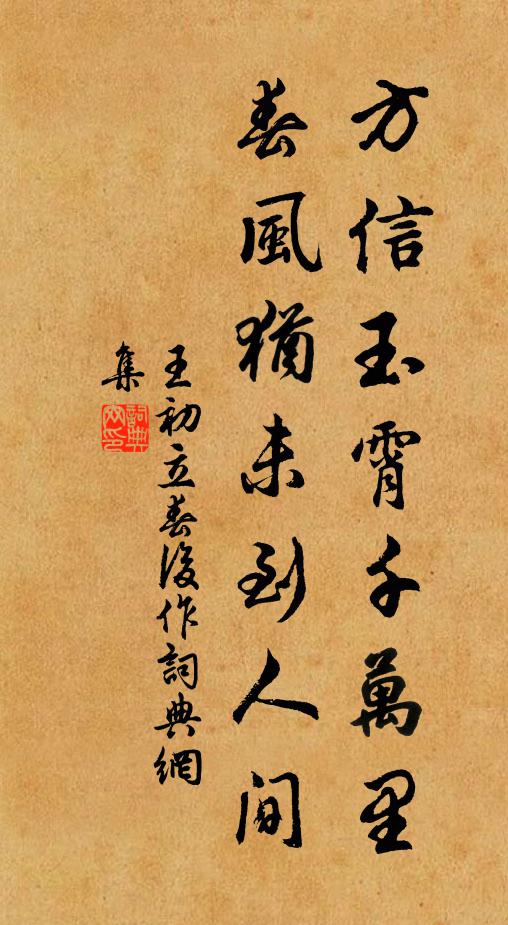 方信玉霄千萬里
春風猶未到人間
王初立春後作詞典網
集
詞典
網印